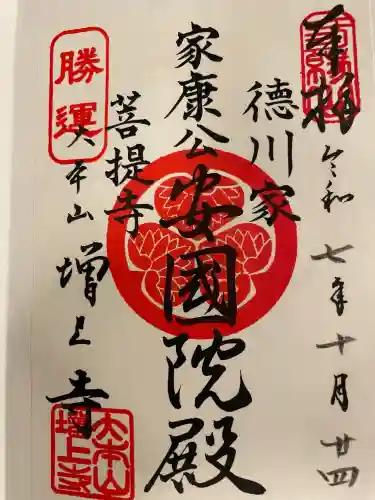 奉拝
令和七年十月廿四
德川家
家康公安國院殿
菩提寺
勝運
大本山増上寺
大本山
増上寺